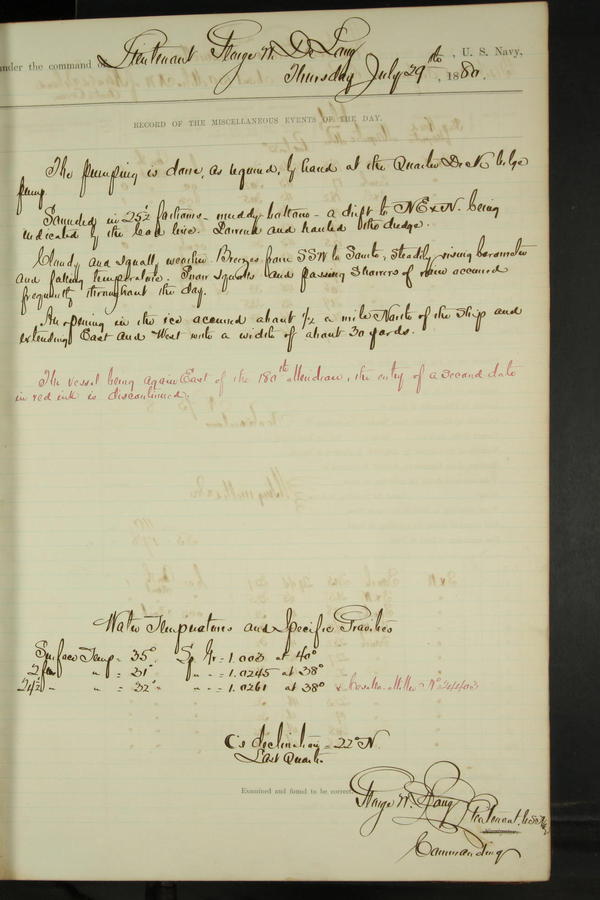 under the command of Lieutenant George W. De Long, U. S. Navy,
Thursday July 29th, 1880.
RECORD OF THE MISCELLANEOUS EVENTS OF THE DAY.
The pumping is done, as required, by hand at the Quarter Deck bilge
pump.
Sounded in 25½ fathoms - muddy bottom - a drift to NE x N. being
indicated by the lead line. Lowered and hauled the dredge.
Cloudy and squally weather. Breezes from SSW to South, steadily rising barometer
and falling temperature. Snow squalls and passing showers of rain occurred
frequently throughout the day.
An opening in the ice occurred about ½ a mile North of the ship and
extending East and West with a width of about 30 yards.
The vessel being again East of the 180th Meridian, the entry of a second date
in red ink is discontinued.
Water Temperatures and Specific Gravities
Surface Temp = 35° Sp Gr = 1.003 at 40°
2 fm " = 31° " " = 1.0245 at 38°
24½ " " = 32° " " = 1.0261 at 38° x Casella-Miller No 24403
☾'s declination = 22° N.
Last Quarter
Examined and found to be correct.
George W. De Long Lieutenant, U.S.N.
Navigator.
Commanding